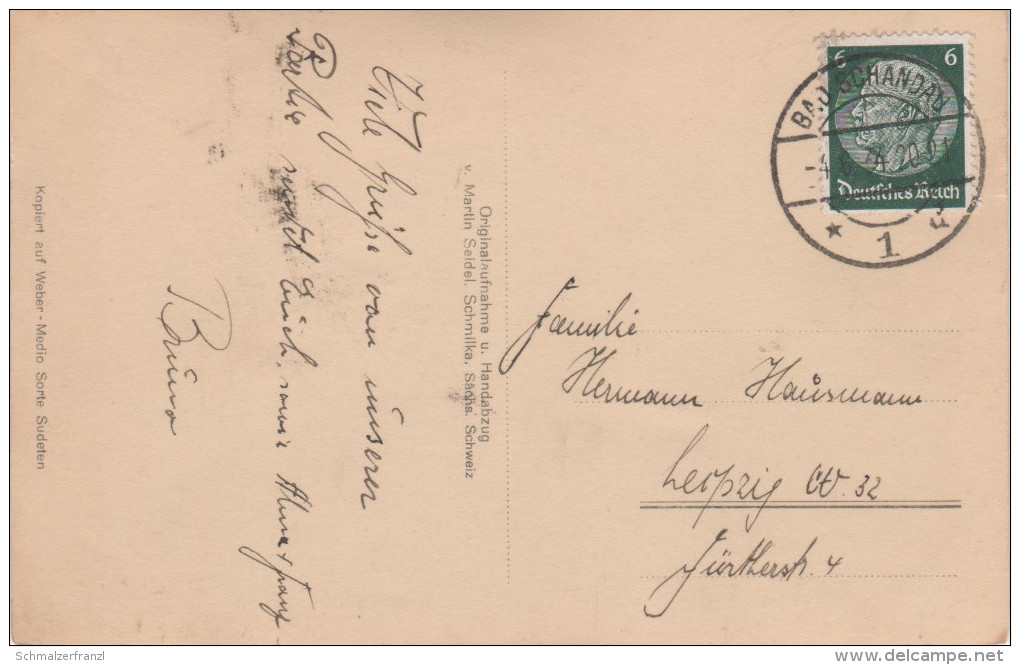 Viele Grüße von unserer
Partie sendet Euch, sowie
Bruno
Originalaufnahme u. Handabzug
v. Martin Seidel. Schmilka. Sächs. Schweiz
Kopiert auf Weber-Medio Sorte Sudeten
6 6
Deutsches Reich
BAD SCHANDAU
1
Familie
Hermann Hausmann
Leipzig W. 32
Fürtherstr. 4
Schmalzerfranzl
delcampe.net